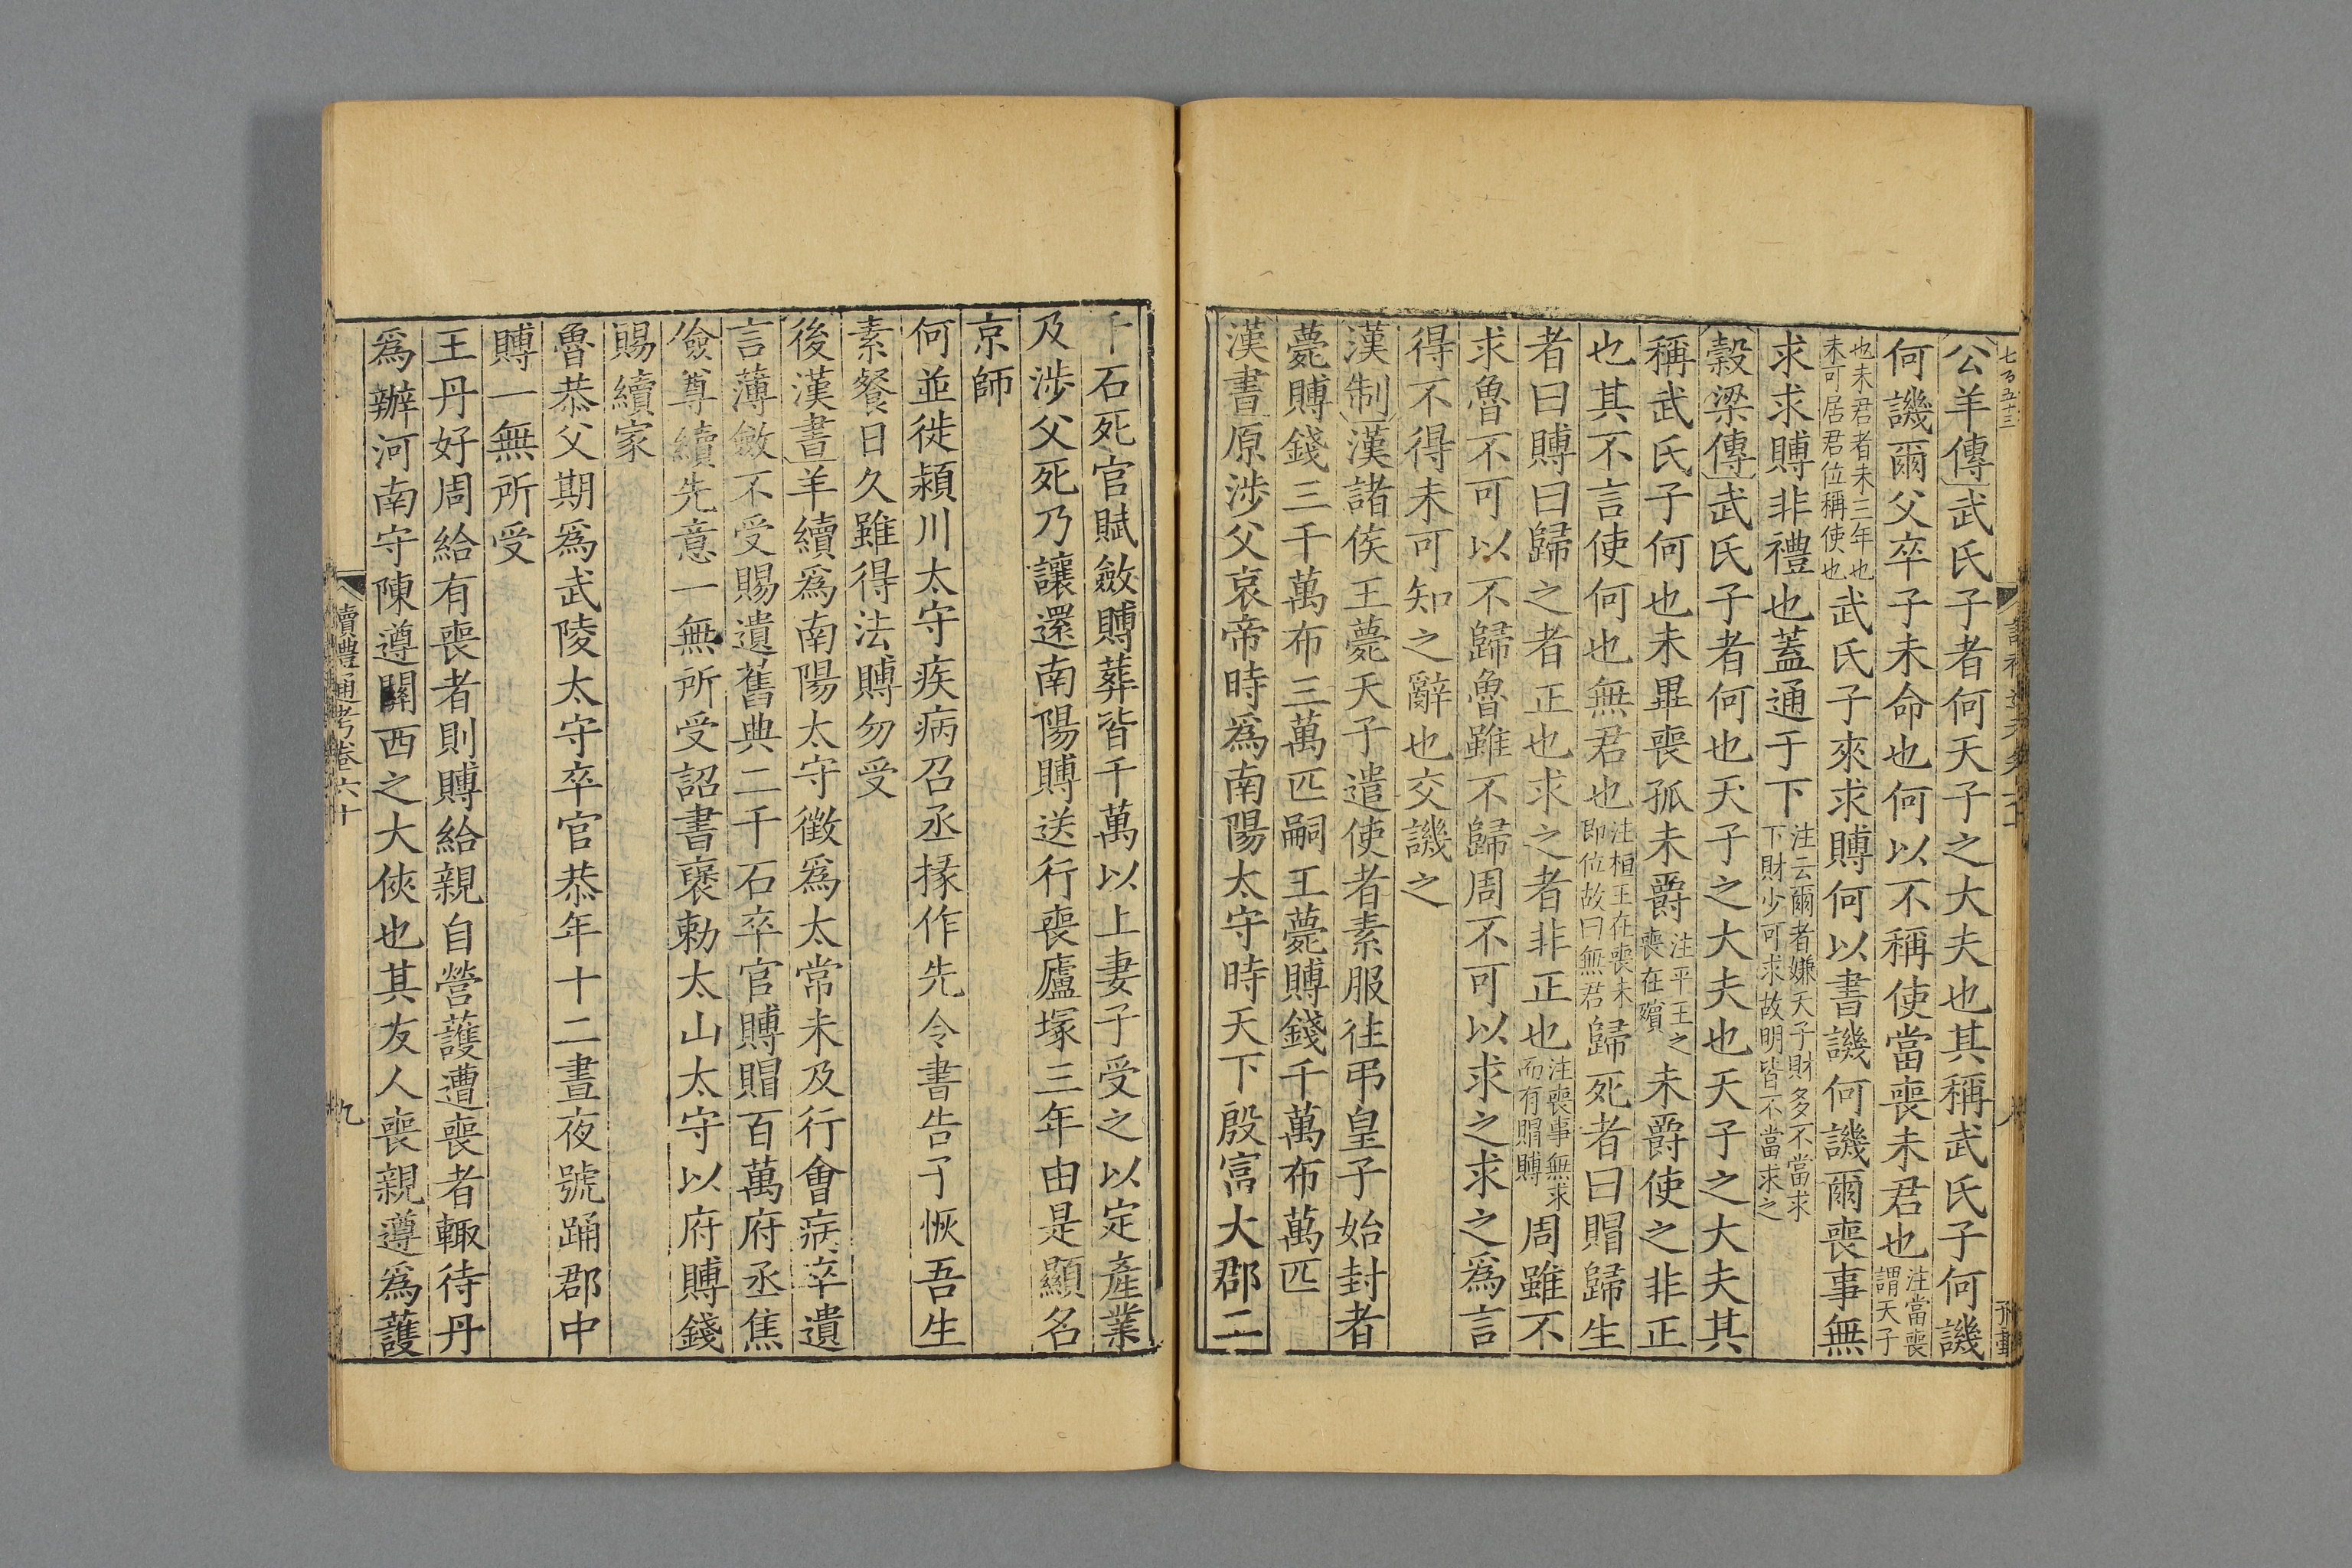 七百五十三
公羊傳武氏子者何天子之大夫也其稱武氏子何譏
何譏爾父卒子未命也何以不稱使當喪未君也注當喪謂天子
也未君者未三年也未可居君位稱使也武氏子來求賻何以書譏何譏爾喪事無
求求賻非禮也蓋通于下注云爾者嫌天子財多不當求下財少可求故明皆不當求之
穀梁傳武氏子者何也天子之大夫也天子之大夫其
稱武氏子何也未畢喪孤未爵注平王之喪在殯未爵使之非正
也其不言使何也無君也注桓王在喪未即位故曰無君歸死者曰賵歸生
者曰賻曰歸之者正也求之者非正也注喪事無求而有賵賻周雖不
求魯不可以不歸魯雖不歸周不可以求之求之爲言
得不得未可知之辭也交譏之
漢制漢諸侯王薨天子遣使者素服往弔皇子始封者
薨賻錢三千萬布三萬匹嗣王薨賻錢千萬布萬匹
漢書原涉父哀帝時爲南陽太守時天下殷富大郡二
千石死官賦斂賻葬皆千萬以上妻子受之以定產業
及涉父死乃讓還南陽賻送行喪廬塚三年由是顯名
京師
何並徙潁川太守疾病召丞掾作先令書告子恢吾生
素餐日久雖得法賻勿受
後漢書羊續爲南陽太守徵爲太常未及行會病卒遺
言薄斂不受賜遺舊典二千石卒官賻賵百萬府丞焦
儉尊續先意一無所受詔書褒勅太山太守以府賻錢
賜續家
魯恭父期爲武陵太守卒官恭年十二晝夜號踊郡中
賻一無所受
王丹好周給有喪者則賻給親自營護遭喪者輙待丹
爲辦河南守陳遵關西之大俠也其友人喪親遵爲護
讀禮通考卷六十
九